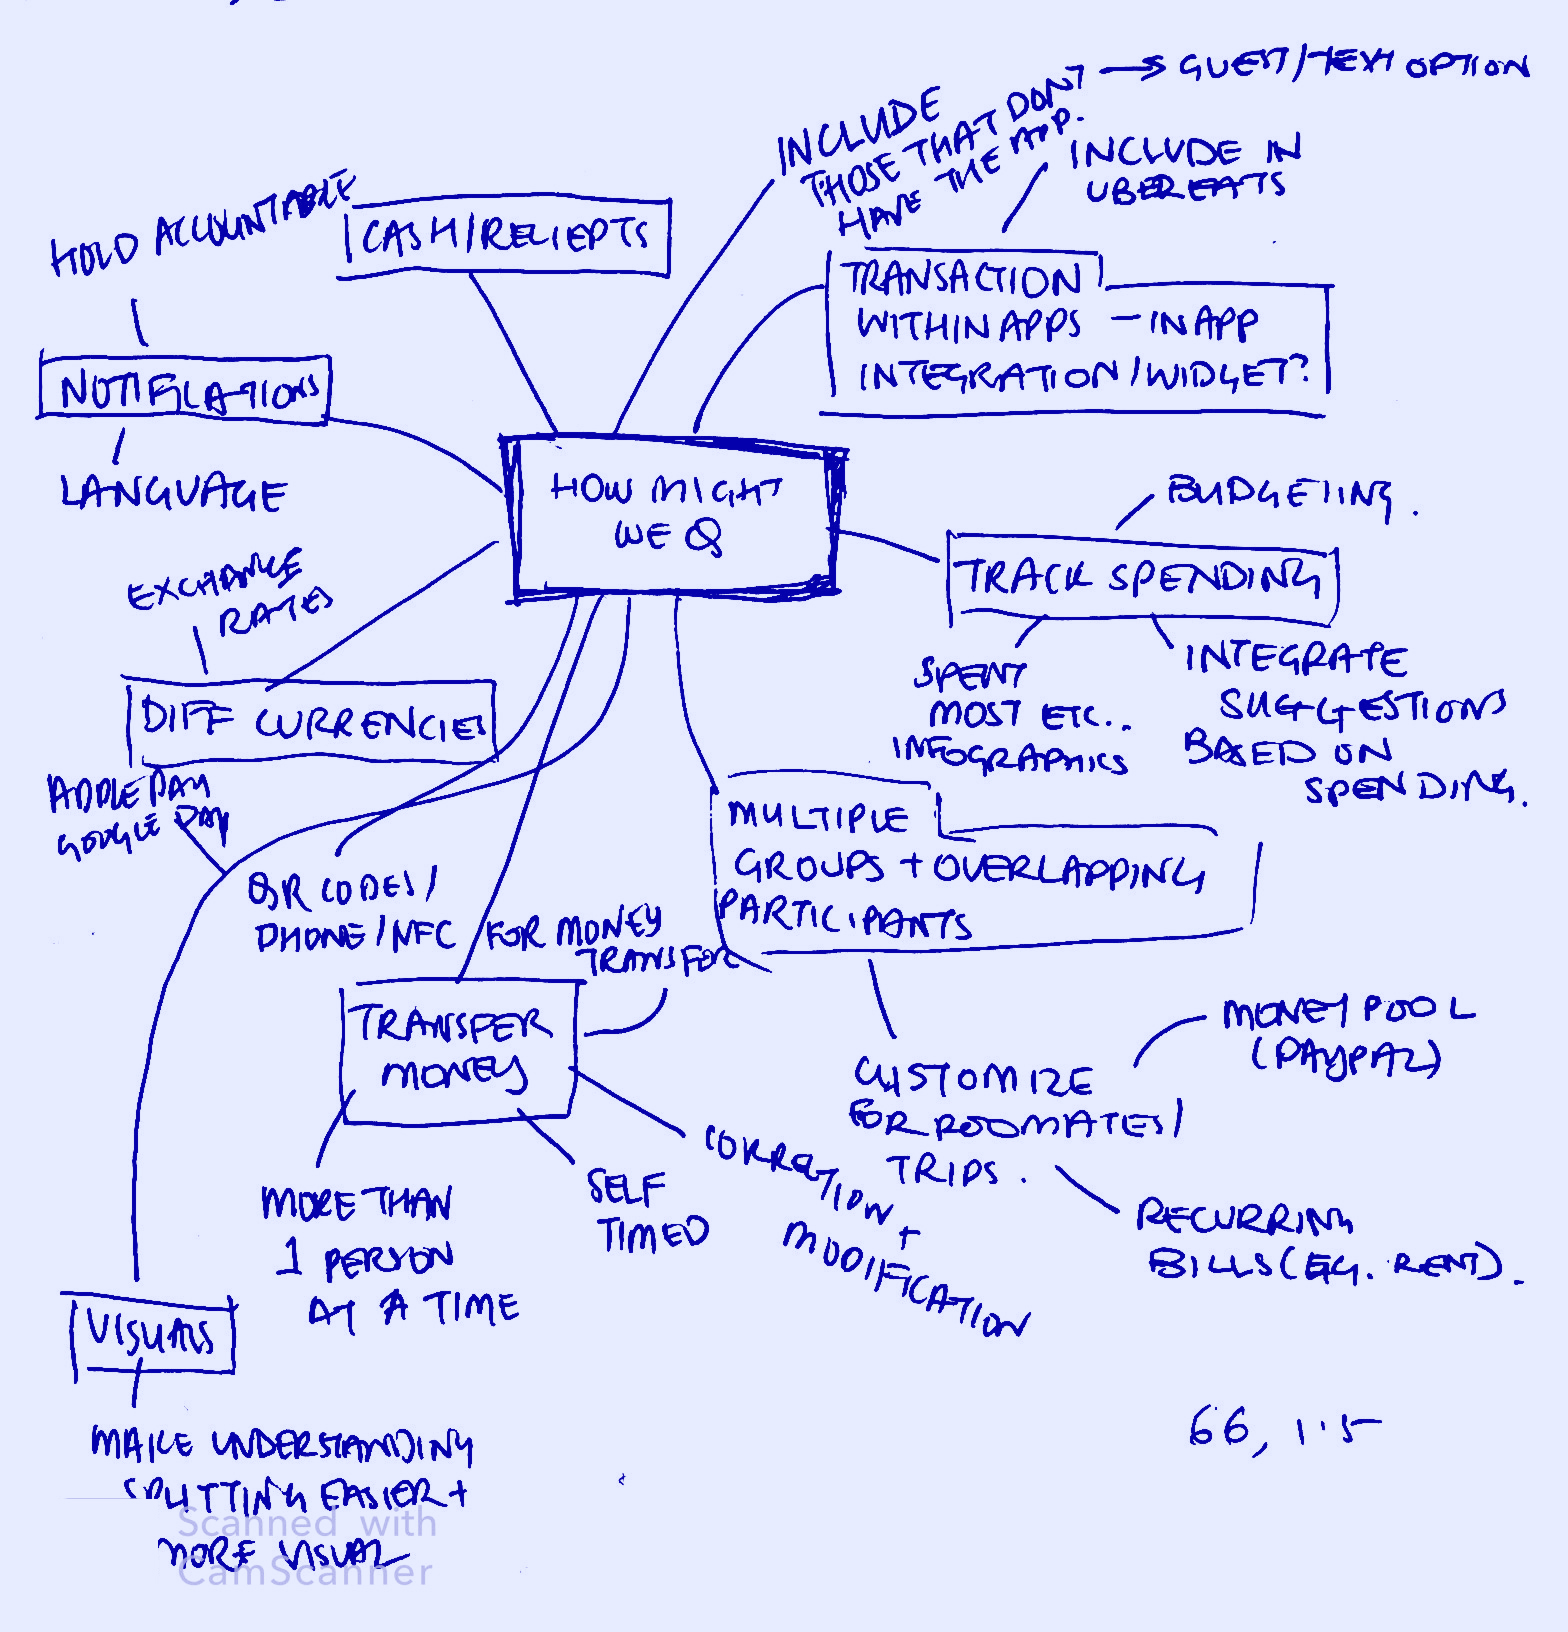 INCLUDE
THOSE THAT DON'T
HAVE THE APP.
→ GUEST/TEXT OPTION
INCLUDE IN
UBEREATS
HOLD ACCOUNTABLE
CASH/RECIEPTS
TRANSACTION
WITHIN APPS — IN APP
INTEGRATION/WIDGET?
NOTIFICATIONS
LANGUAGE
HOW MIGHT
WE Q
BUDGETING.
TRACK SPENDING
SPENT
MOST ETC..
INFOGRAPHICS
INTEGRATE
SUGGESTIONS
BASED ON
SPENDING.
EXCHANGE
RATES
DIFF CURRENCIES
APPLE PAY
GOOGLE PAY
MULTIPLE
GROUPS + OVERLAPPING
PARTICIPANTS
QR CODES/
PHONE/NFC
FOR MONEY
TRANSFER
TRANSFER
MONEY
CUSTOMIZE
FOR ROOMATES/
TRIPS.
MONEY POOL
(PAYPAL)
RECURRING
BILLS (EG. RENT).
MORE THAN
1 PERSON
AT A TIME
SELF
TIMED
CORRECTION +
MODIFICATION
VISUALS
MAKE UNDERSTANDING
SPLITTING EASIER +
MORE VISUAL
66, 1.5
Scanned with
CamScanner